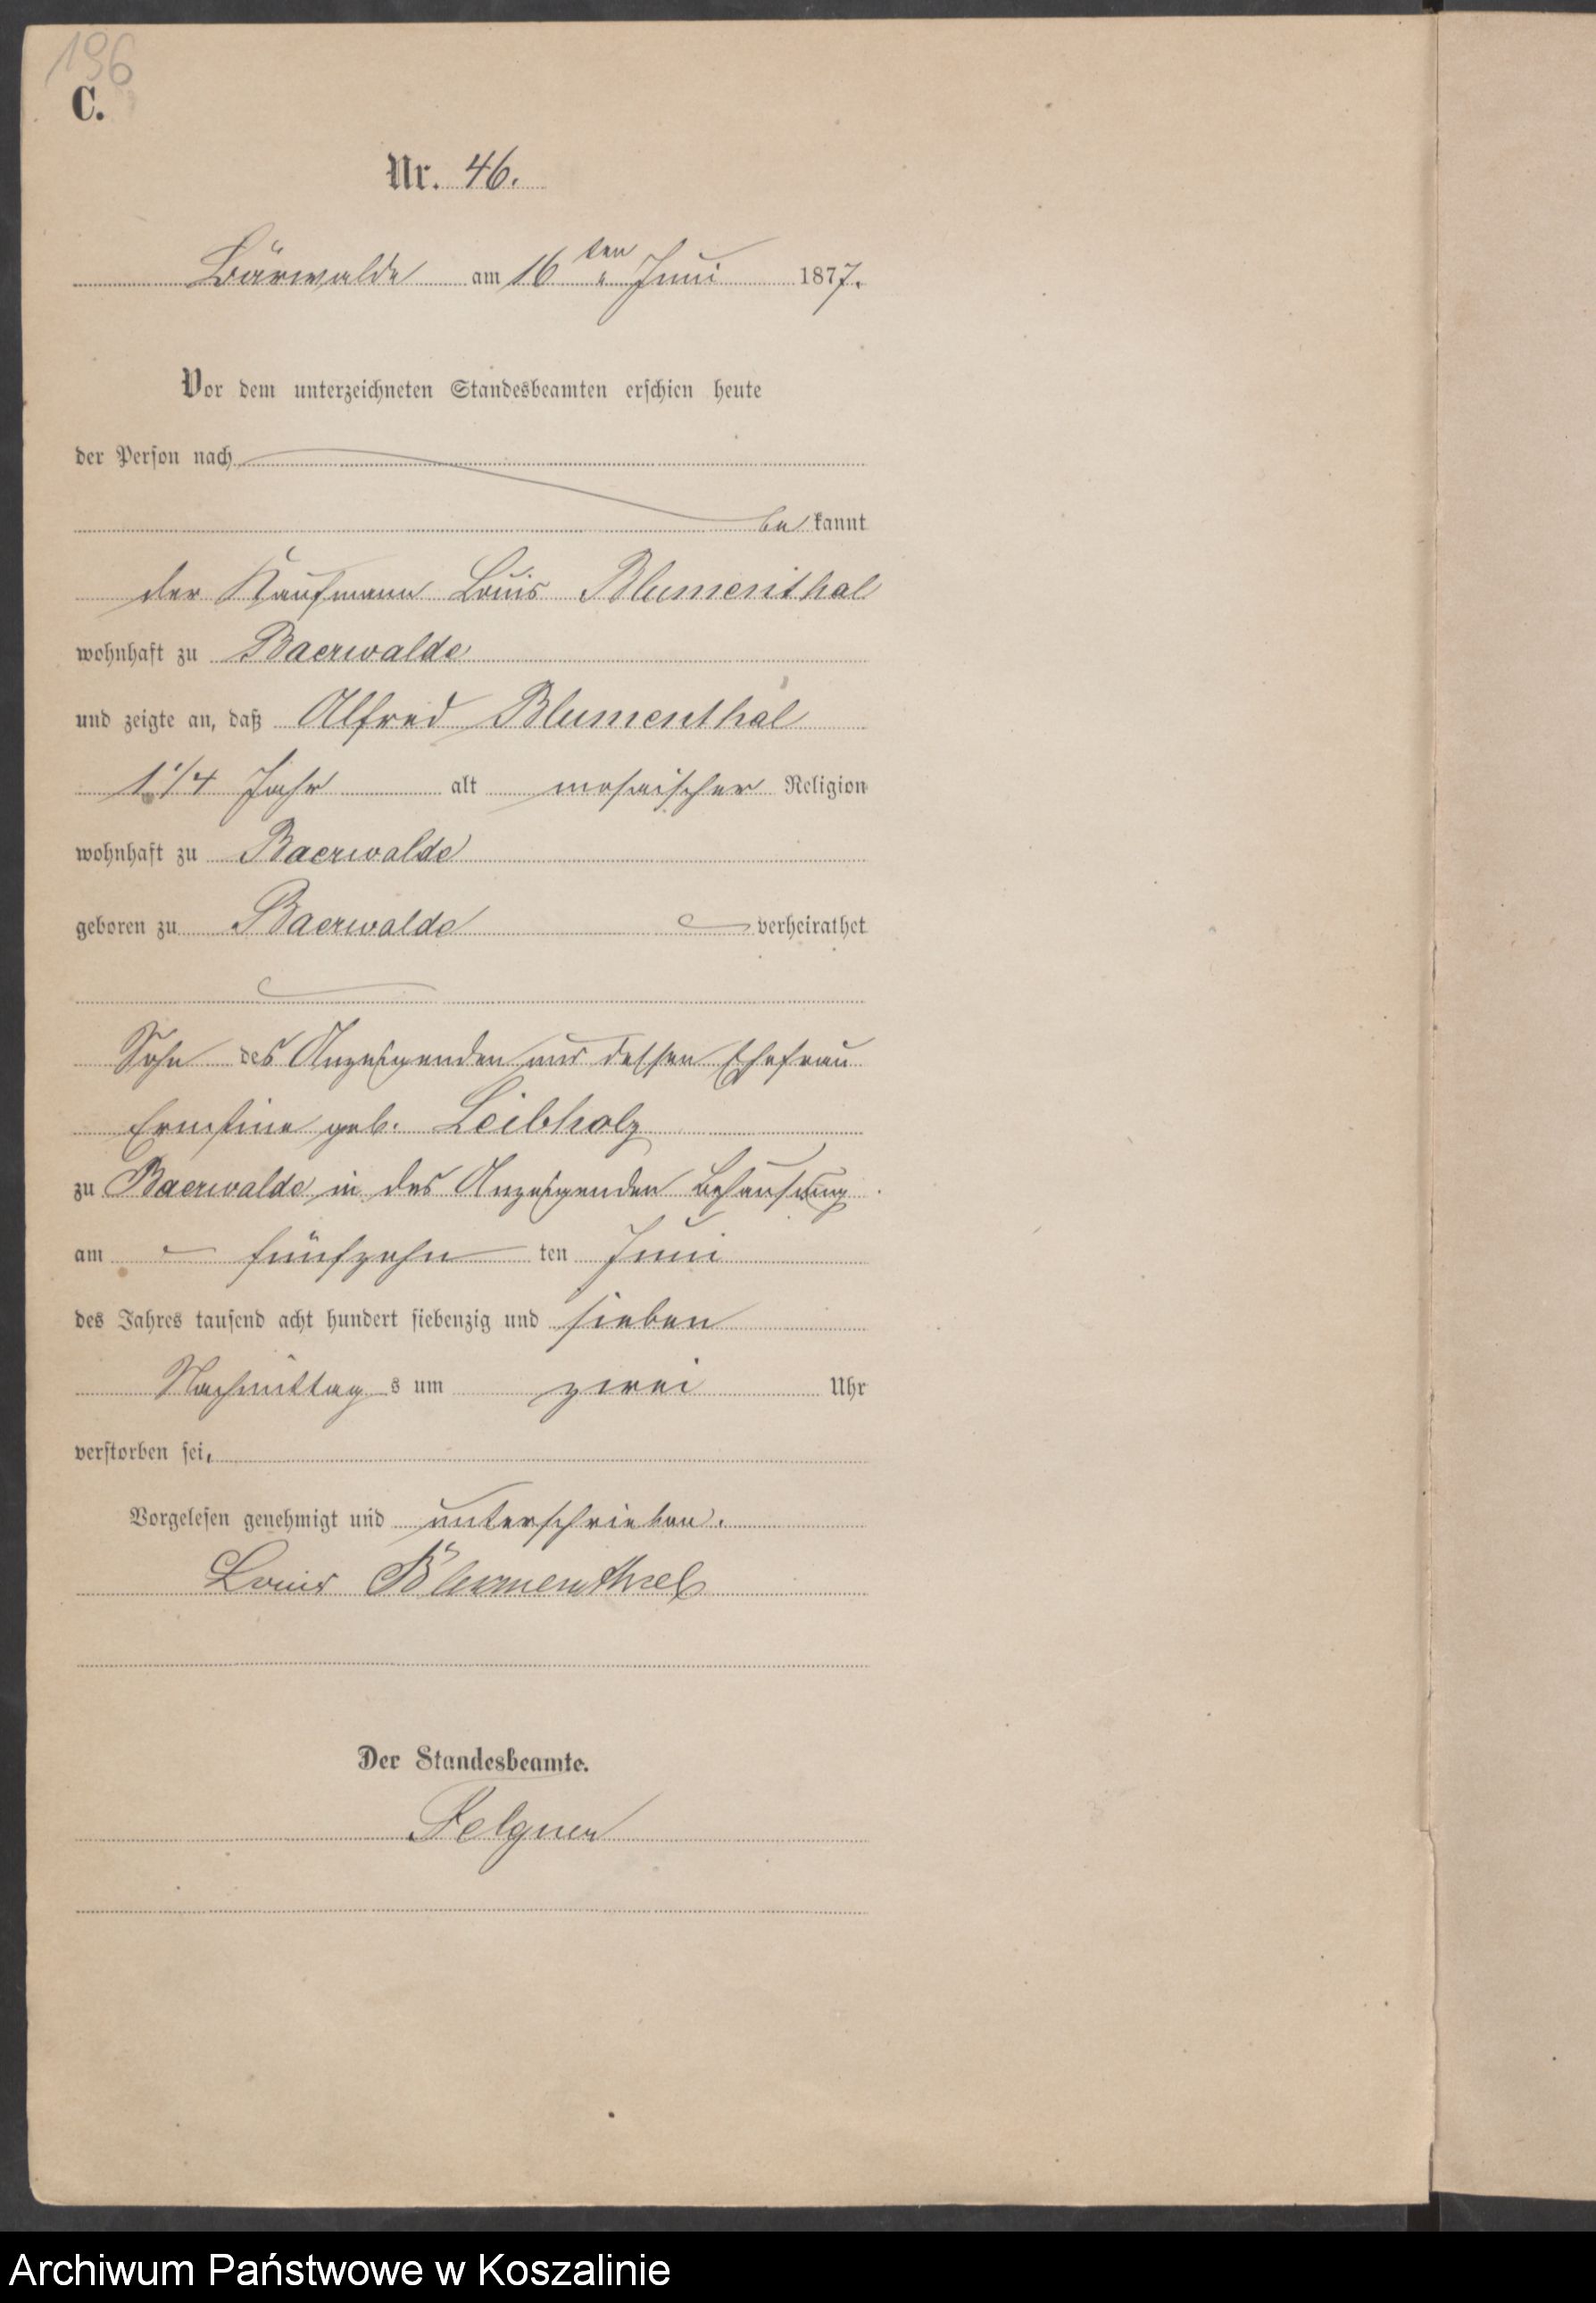 196
C.
Nr. 46.
Bärwalde am 16ten Juni 1877.
Vor dem unterzeichneten Standesbeamten erschien heute
der Person nach
be kannt
der Kaufmann Louis Blumenthal
wohnhaft zu Baerwalde
und zeigte an, daß Alfred Blumenthal
1 1/4 Jahr alt mosaischer Religion
wohnhaft zu Baerwalde
geboren zu Baerwalde verheirathet
Sohn des Anzeigenden und dessen Ehefrau
Ernstine geb. Leibholz
zu Baerwalde in des Anzeigenden Behausung
am fünfzehn ten Juni
des Jahres tausend acht hundert siebenzig und sieben
Nachmittag s um zwei Uhr
verstorben sei,
Vorgelesen genehmigt und unterschrieben.
Louis Blumenthal
Der Standesbeamte.
Felgner
Archiwum Państwowe w Koszalinie